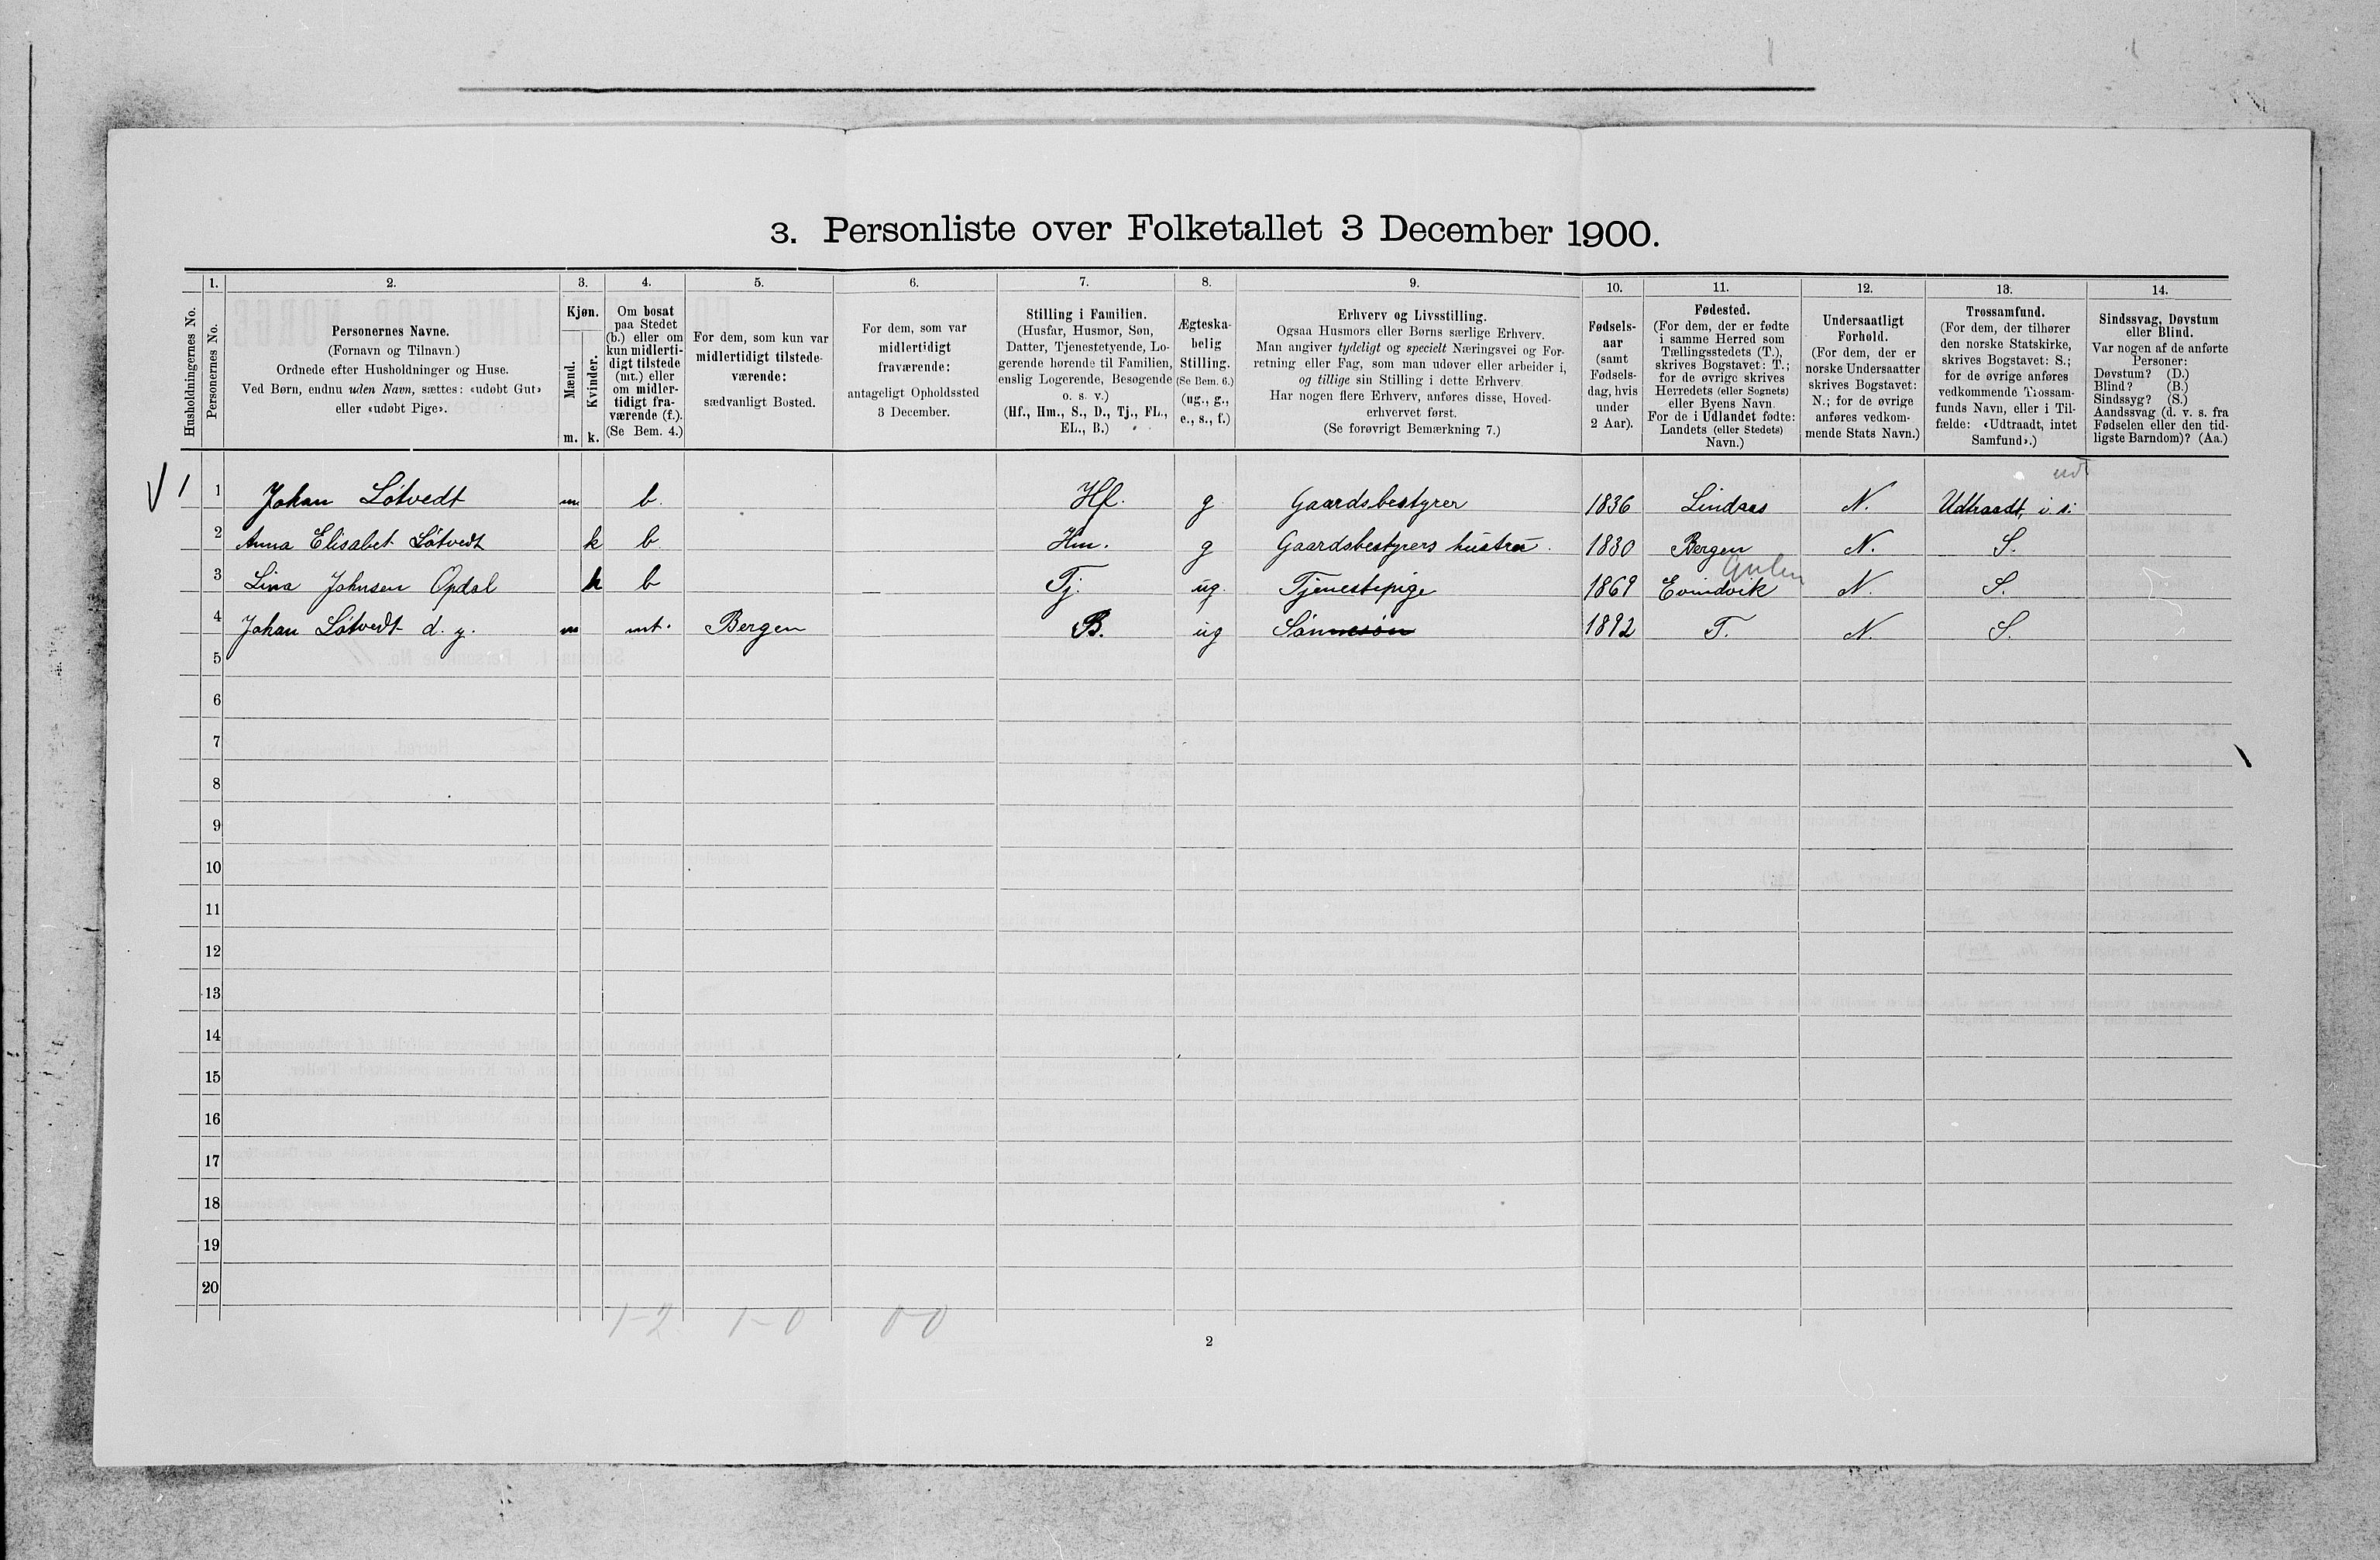 3. Personliste over Folketallet 3 December 1900.
Husholdningernes No.
1.
Personernes No.
2.
Personernes Navne.
(Fornavn og Tilnavn.)
Ordnede efter Husholdninger og Huse.
Ved Børn, endnu uden Navn, sættes: «udøbt Gut»
eller «udøbt Pige».
3.
Kjøn.
Mænd.
Kvinder.
m.
k.
4.
Om bosat
paa Stedet
(b.) eller om
kun midlerti-
digt tilstede
(mt.) eller
om midler-
tidigt fra-
værende (f.).
(Se Bem. 4.)
5.
For dem, som kun var
midlertidigt tilstede-
værende:
sædvanligt Bosted.
6.
For dem, som var
midlertidigt
fraværende:
antageligt Opholdssted
3 December.
7.
Stilling i Familien.
(Husfar, Husmor, Søn,
Datter, Tjenestetyende, Lo-
gerende hørende til Familien,
enslig Logerende, Besøgende
o. s. v.)
(Hf., Hm., S., D., Tj., FL.,
EL., B.)
8.
Ægteska-
belig
Stilling.
(Se Bem. 6.)
(ug., g.,
e., s., f.)
9.
Erhverv og Livsstilling.
Ogsaa Husmors eller Børns særlige Erhverv.
Man angiver tydeligt og specielt Næringsvei og For-
retning eller Fag, som man udøver eller arbeider i,
og tillige sin Stilling i dette Erhverv.
Har nogen flere Erhverv, anføres disse, Hoved-
erhvervet først.
(Se forøvrigt Bemærkning 7.)
10.
Fødsels-
aar
(samt
Fødsels-
dag, hvis
under
2 Aar).
11.
Fødested.
(For dem, der er fødte
i samme Herred som
Tællingsstedets (T.),
skrives Bogstavet: T.;
for de øvrige skrives
Herredets (eller Sognets)
eller Byens Navn.
For de i Udlandet fødte:
Landets (eller Stedets)
Navn.)
12.
Undersaatligt
Forhold.
(For dem, der er
norske Undersaatter
skrives Bogstavet:
N.; for de øvrige
anføres vedkom-
mende Stats Navn.)
13.
Trossamfund.
(For dem, der tilhører
den norske Statskirke,
skrives Bogstavet: S.;
for de øvrige anføres
vedkommende Trossam-
funds Navn, eller i Til-
fælde: «Udtraadt, intet
Samfund».)
14.
Sindssvag, Døvstum
eller Blind.
Var nogen af de anførte
Personer:
Døvstum? (D.)
Blind? (B.)
Sindssyg? (S.)
Aandssvag (d. v. s. fra
Fødselen eller den tid-
ligste Barndom)? (Aa.)
udt
1 1 Johan Løtvedt m b. Hf. g Gaardsbestyrer 1836 Lindaas N. Udtraadt, i. s.
2 Anna Elisabet Løtvedt k b Hm. g Gaardsbestyrers hustru. 1830 Bergen N. S.
Gulen
3 Lina Johnsen Opdal k b Tj. ug. Tjenestepige 1869 Evindvik N. S.
4 Johan Løtvedt d. y. m mt. Bergen B. ug Sønnesøn 1892 T. N. S.
5
6
7
8
9
10
11
12
13
14
15
16
17
18
19
20
1-2 1-0 0-0
2